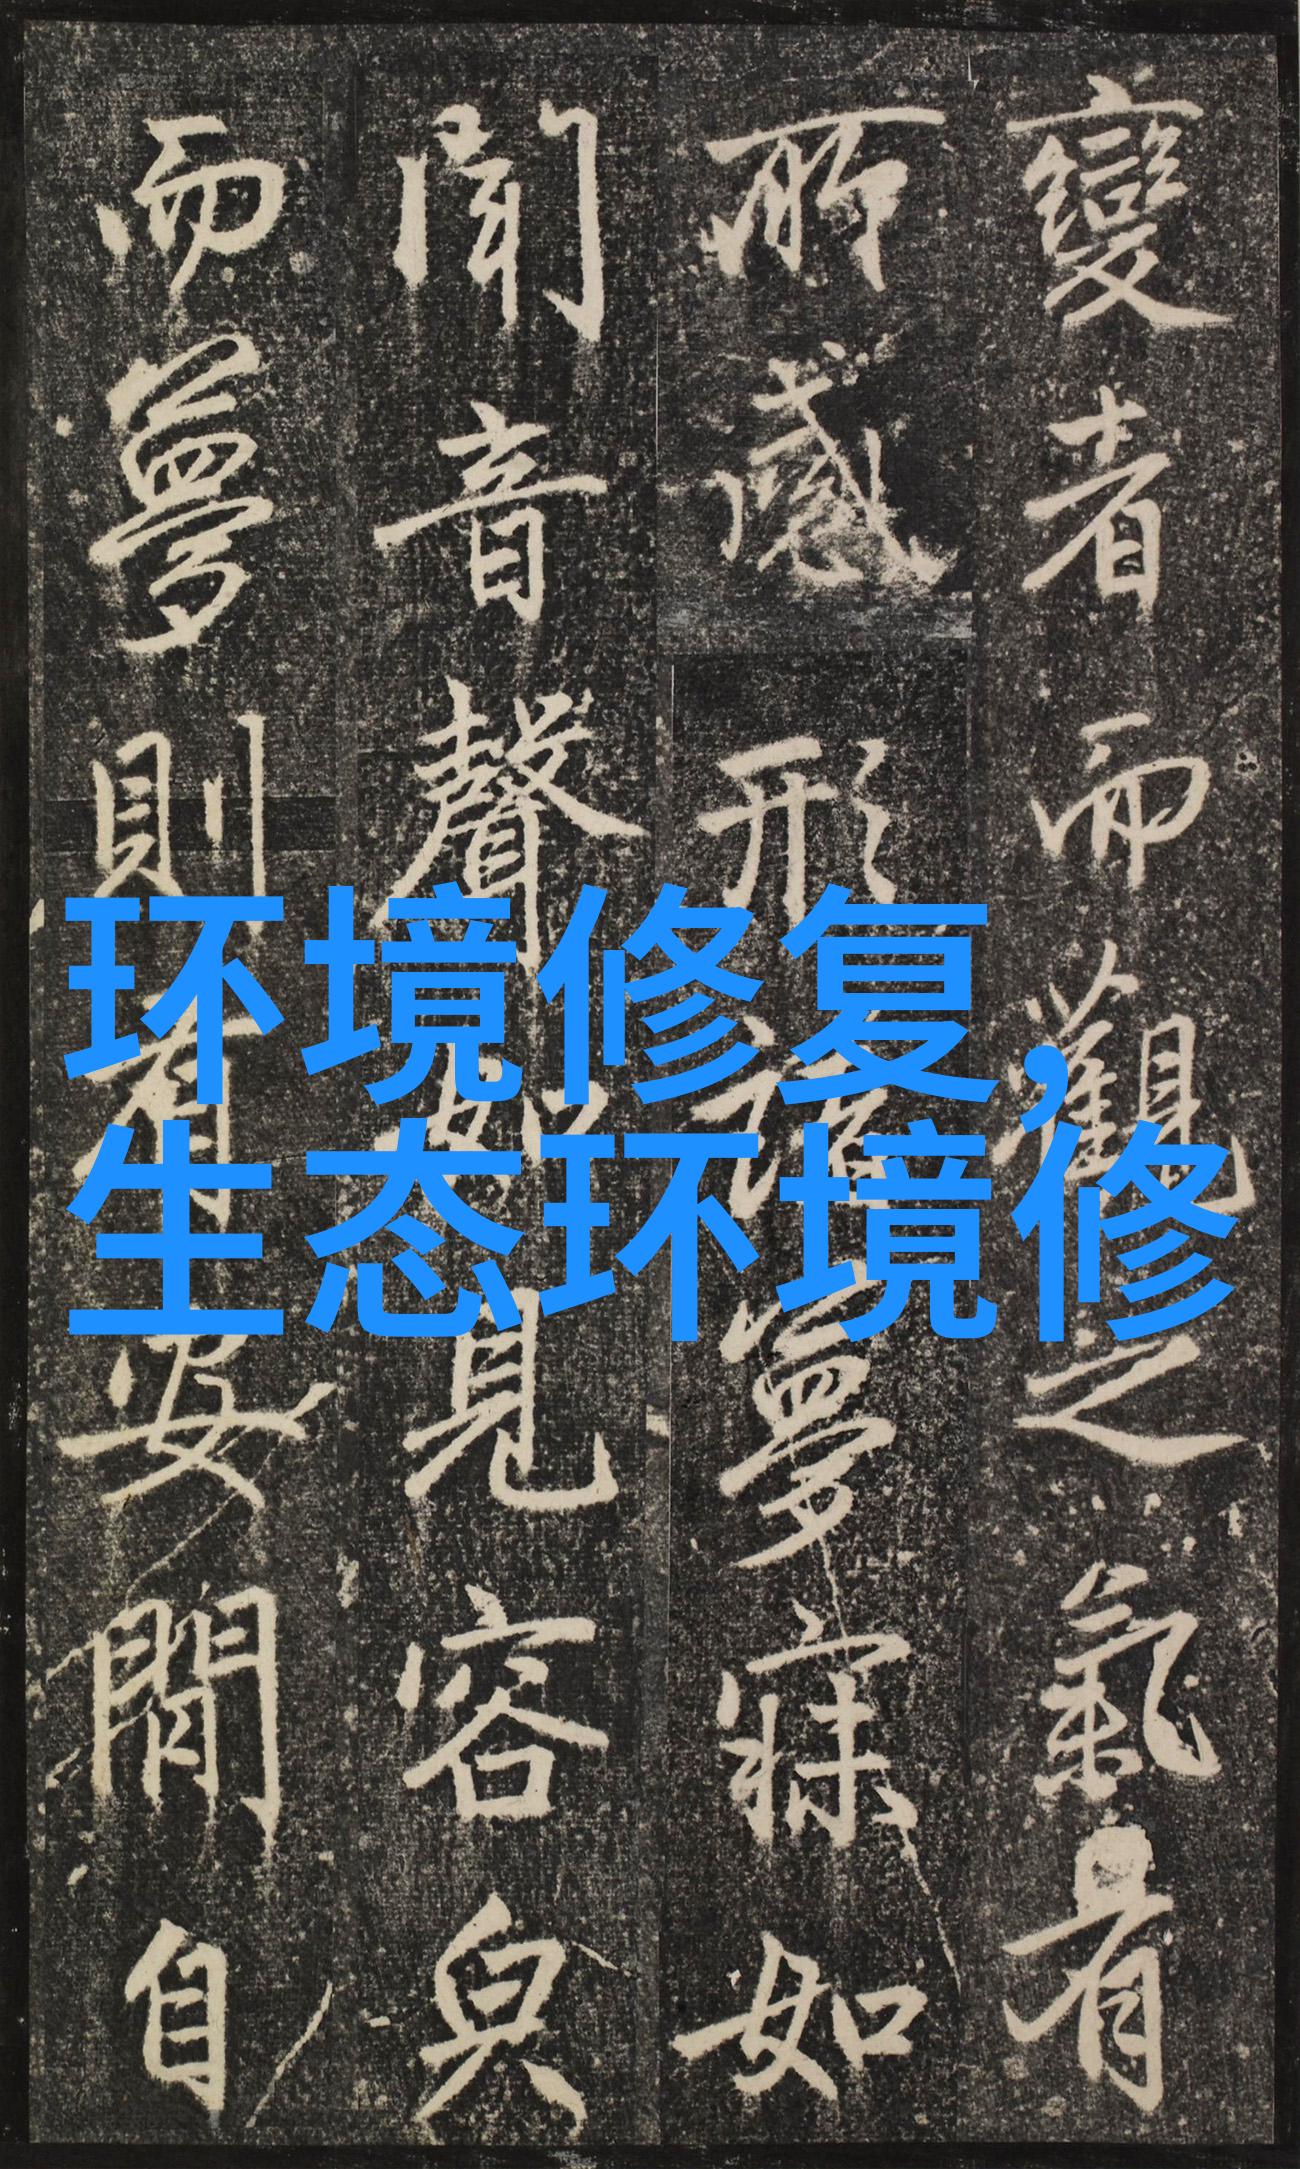 環境修复,
生态环境修
變者而觀之氣有
所感形諸夢寐如
聞音聲如見容皃
而夢則有安閒自